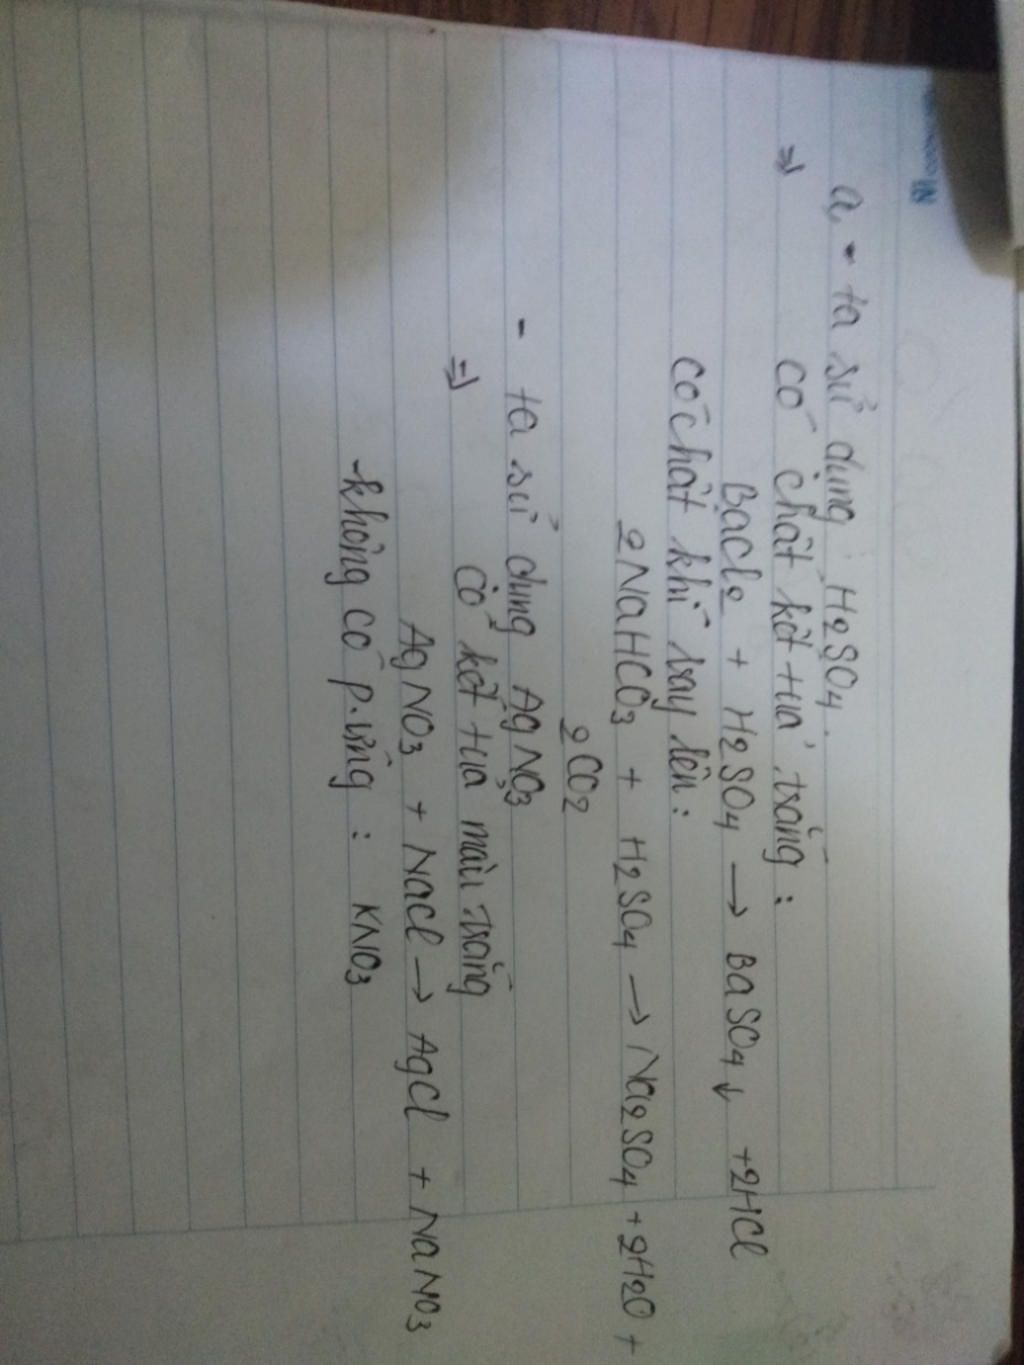 a, - ta sử dụng H2SO4.
=> có chất kết tủa trắng :
BaCl2 + H2SO4 → BaSO4↓ +2HCl
có chất khí bay lên :
2NaHCO3 + H2SO4 → Na2SO4 +2H2O +
2CO2
- ta sử dụng AgNO3
=> có kết tủa màu trắng
AgNO3 + NaCl → AgCl + NaNO3
-không có p.ứng : KNO3